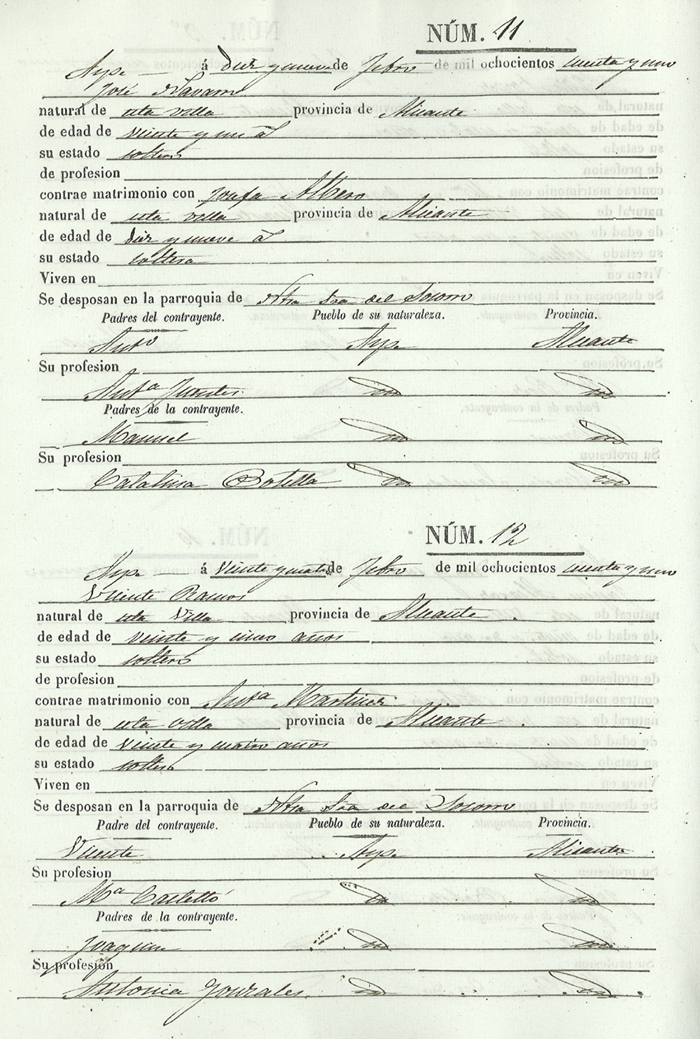 NÚM. 11
Aspe á diez y nueve de Febro de mil ochocientos cuenta y uno
José Navarro
natural de esta villa provincia de Alicante
de edad de veinte y un as
su estado soltero
de profesion
contrae matrimonio con Josefa Albero
natural de esta villa provincia de Alicante
de edad de diez y nueve as
su estado soltera
Viven en
Se desposan en la parroquia de Ntra Sra del Socorro
Padres del contrayente. Pueblo de su naturaleza. Provincia.
Anto Aspe Alicante
Su profesion
Anta id id
Padres de la contrayente.
Manuel id id
Su profesion
Catalina Botella id id
NÚM. 12
Aspe á veinte y cuatro de Febro de mil ochocientos cuenta y uno
Vicente Ramos
natural de esta Villa provincia de Alicante
de edad de veinte y cinco años
su estado soltero
de profesion
contrae matrimonio con Anta Martinez
natural de esta villa provincia de Alicante
de edad de veinte y cuatro años
su estado soltera
Viven en
Se desposan en la parroquia de Ntra Sra del Socorro
Padre del contrayente. Pueblo de su naturaleza. Provincia.
Vicente Aspe Alicante
Su profesion
Ma Castelló id id
Padres de la contrayente.
Joaquin id id
Su profesion
Antonia Gonzales id id